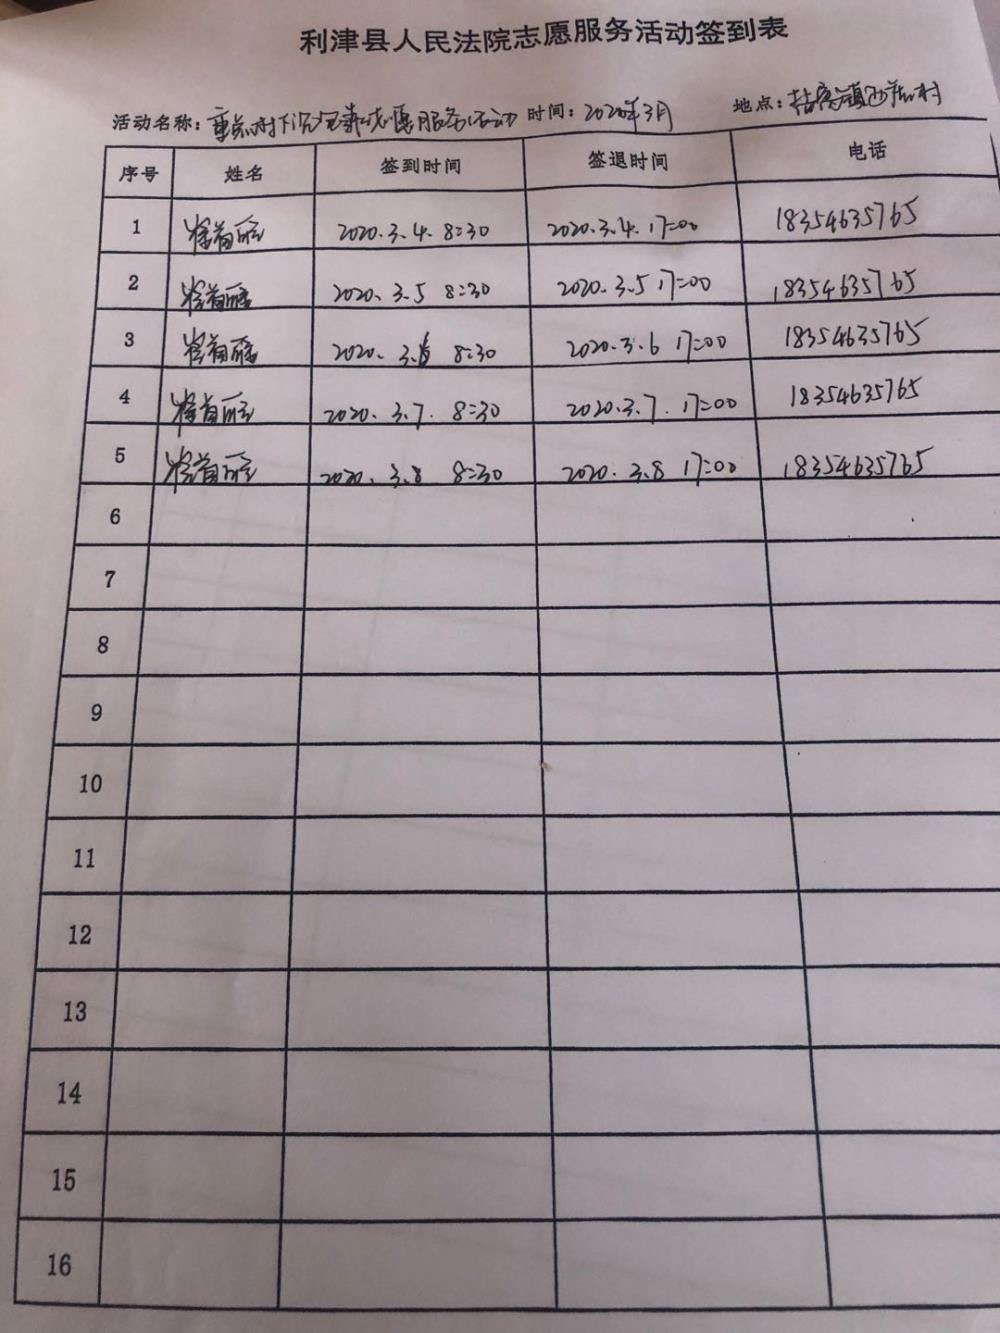 利津县人民法院志愿服务活动签到表
活动名称：重点村下沉 志愿服务活动 时间：2020年3月 地点： 镇 村
序号 姓名 签到时间 签退时间 电话
1 2020.3.4. 8:30 2020.3.4. 17:00 18354635765
2 2020. 3.5 8:30 2020. 3.5 17:00 18354635765
3 2020. 3.6 8:30 2020.3.6 17:00 18354635765
4 2020. 3.7. 8:30 2020.3.7. 17:00 18354635765
5 2020. 3.8 8:30 2020. 3.8 17:00 18354635765
6
7
8
9
10
11
12
13
14
15
16